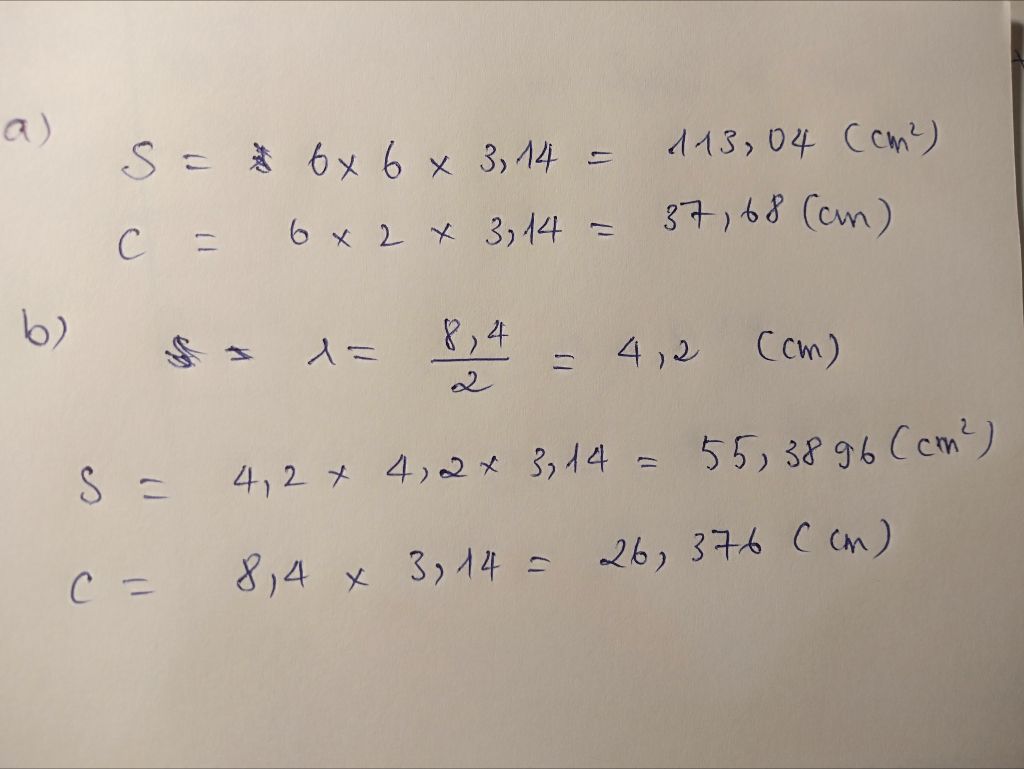 a)
S = 6 x 6 x 3,14 = 113,04 (cm²)
C = 6 x 2 x 3,14 = 37,68 (cm)
b)
r = 8,4/2 = 4,2 (cm)
S = 4,2 x 4,2 x 3,14 = 55,3896 (cm²)
C = 8,4 x 3,14 = 26,376 (cm)